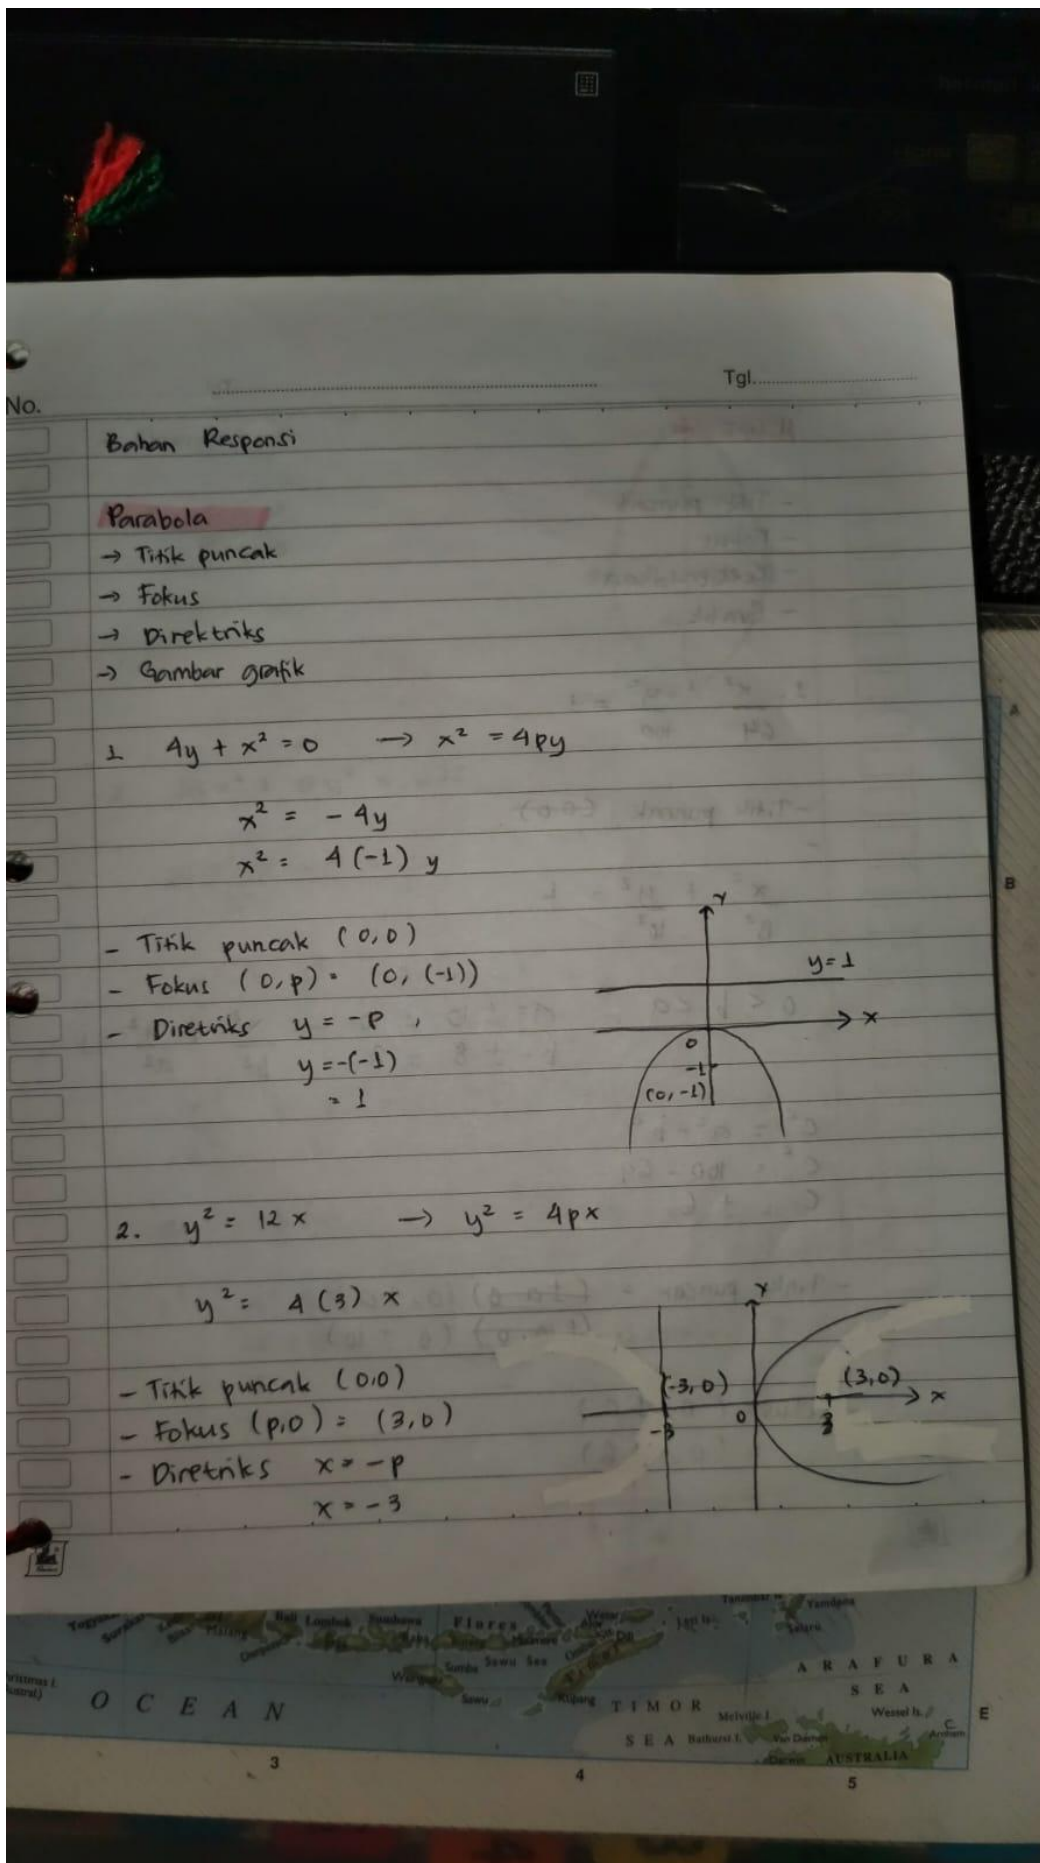 Tgl.
No.
Bahan Responsi
Parabola
→ Titik puncak
→ Fokus
→ Direktriks
→ Gambar grafik
1 4y + x² = 0 → x² = 4py
x² = - 4y
x² = 4 (-1) y
- Titik puncak (0,0)
- Fokus (0,p) = (0, (-1))
- Diretriks y = -p ,
y = -(-1)
= 1
Y
y = 1
X
0
-1
(0, -1)
2. y² = 12 x → y² = 4px
y² = 4 (3) x
- Titik puncak (0,0)
- Fokus (p,0) = (3,0)
- Diretriks x = -p
x = -3
Y
(-3,0)
(3,0)
X
-3
0
3
A
B
Bali Lombok Sumbawa Flores
Sumba Sawu Sea
Sawu
Kupang
OCEAN
TIMOR
SEA
Melville I.
Bathurst I.
Yamdena
Selaru
ARAFURA
SEA
Wessel Is.
Darwin
AUSTRALIA
E
3
4
5